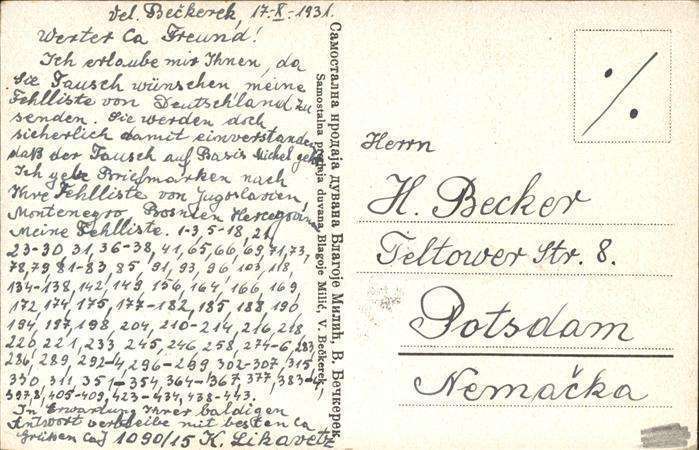 Vel. Bečkerek, 17-X-1931.
Werter Ca Freund!
Ich erlaube mir Ihnen, da
Sie Tausch wünschen meine
Fehlliste von Deutschland zu
senden. Sie werden doch
sicherlich damit einverstanden
daß der Tausch auf Basis Michel geht.
Ich gebe Briefmarken nach
Ihre Fehlliste von Jugoslavien,
Montenegro Bosnien Hercegovina
Meine Fehlliste. 1-3, 5-18, 21,
23-30 31, 36-38, 41, 65, 66, 69, 71, 73,
78, 79 81-83, 85, 91, 93, 96 103, 118,
134-138, 142, 149, 156, 164, 166, 169,
172, 174, 175, 177-182, 185, 188, 190
194, 197, 198, 204, 210-214, 216, 218
220, 221, 233, 245, 246 258, 274-6, 283,
286, 289, 292-4, 296-299, 302-307, 315,
330, 311, 351-354, 364-367, 377, 383-4,
397,8, 405-409, 423-434, 438-443.
In Erwartung Ihrer baldigen
Antwort verbleibe mit besten Ca
Grüssen CaJ 1090/15 K. Likavetz
Самостална продаја дувана Благоје Милић, В. Бечкерек
Samostalna prodaja duvana Blagoje Milić, V. Bečkerek
Herrn
H. Becker
Teltower Str. 8.
Potsdam
Nemačka